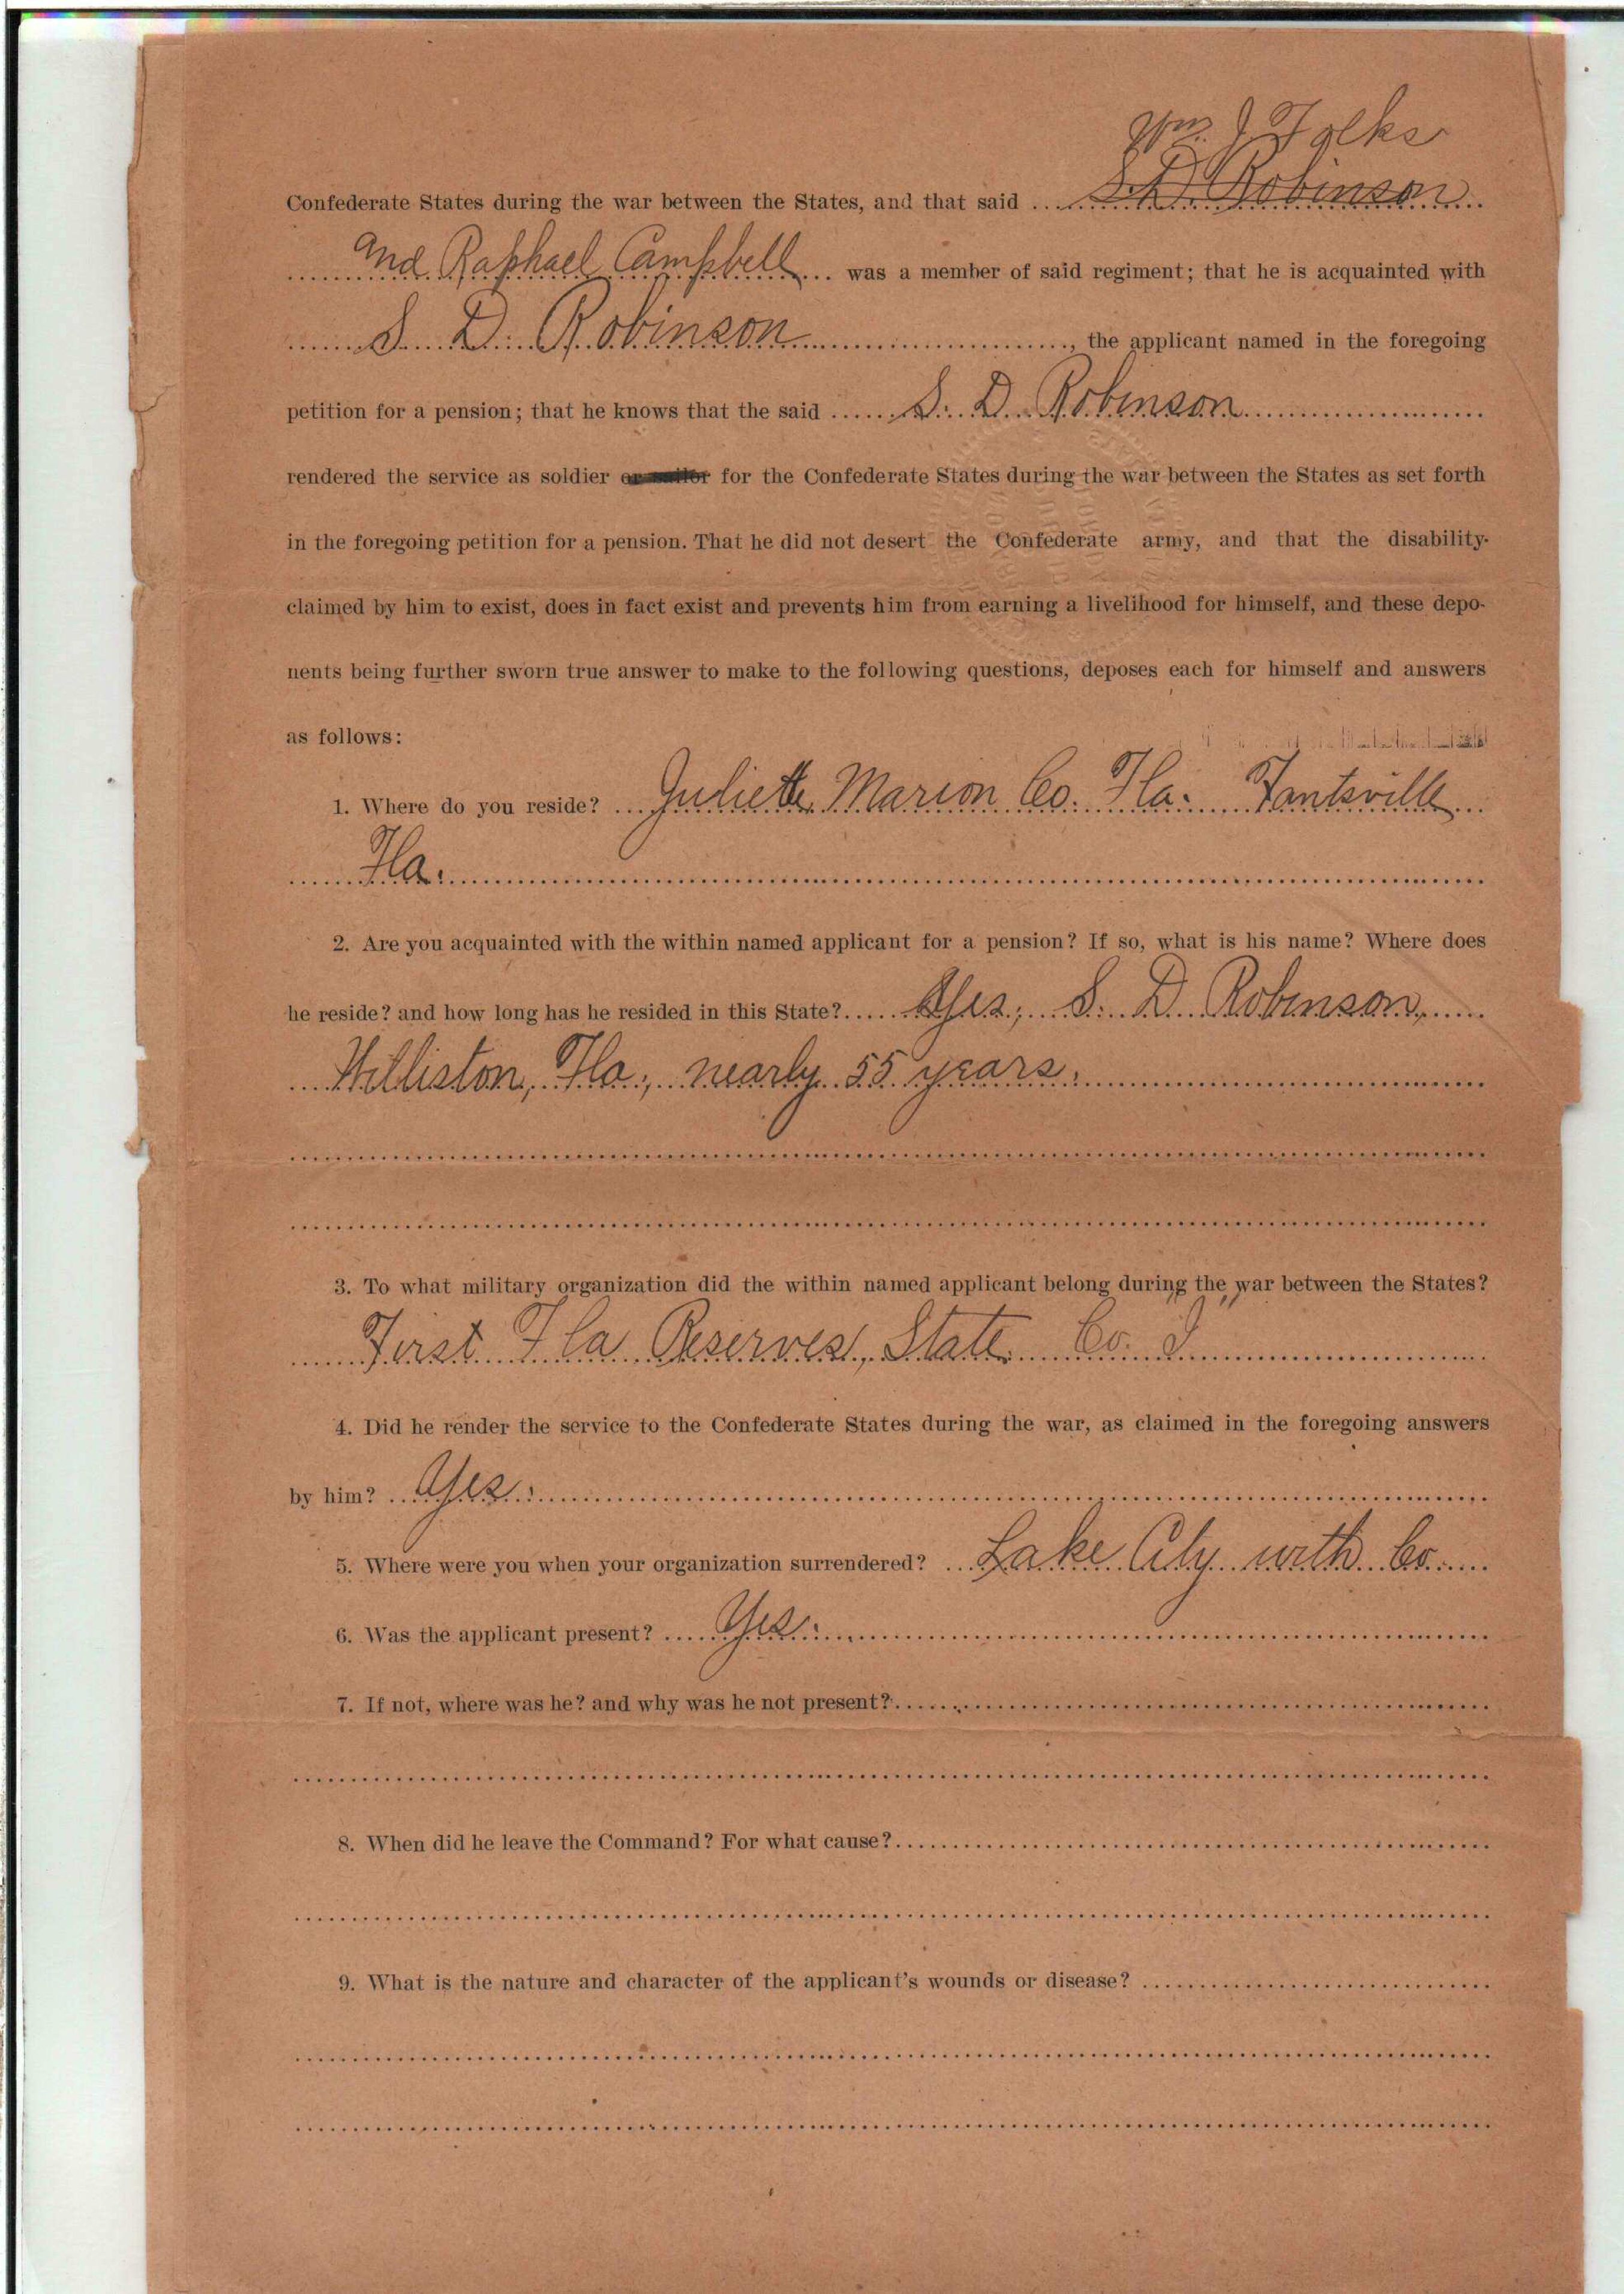 Wm. J Folks
Confederate States during the war between the States, and that said S. D. Robinson
and Raphael Campbell was a member of said regiment; that he is acquainted with
S. D. Robinson, the applicant named in the foregoing
petition for a pension; that he knows that the said S. D. Robinson
rendered the service as soldier or sailor for the Confederate States during the war between the States as set forth
in the foregoing petition for a pension. That he did not desert the Confederate army, and that the disability
claimed by him to exist, does in fact exist and prevents him from earning a livelihood for himself, and these depo-
nents being further sworn true answer to make to the following questions, deposes each for himself and answers
as follows:
1. Where do you reside? Juliette, Marion Co. Fla. Fantsville
Fla.
2. Are you acquainted with the within named applicant for a pension? If so, what is his name? Where does
he reside? and how long has he resided in this State? Yes; S. D. Robinson,
Williston, Fla; nearly 55 years.
3. To what military organization did the within named applicant belong during the war between the States?
First Fla Reserves, State Co. I
4. Did he render the service to the Confederate States during the war, as claimed in the foregoing answers
by him? Yes.
5. Where were you when your organization surrendered? Lake City with Co.
6. Was the applicant present? Yes.
7. If not, where was he? and why was he not present?
8. When did he leave the Command? For what cause?
9. What is the nature and character of the applicant's wounds or disease?